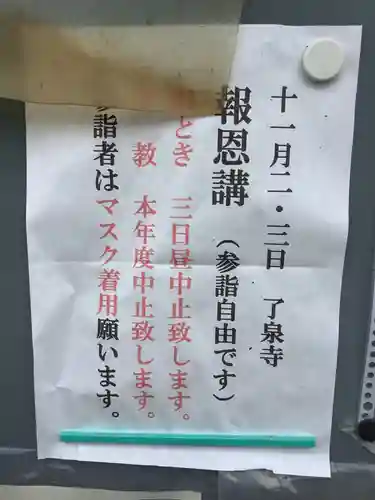 十一月二・三日 了泉寺
報恩講(参詣自由です)
とき 三日昼中止致します。
教 本年度中止致します。
参詣者はマスク着用願います。